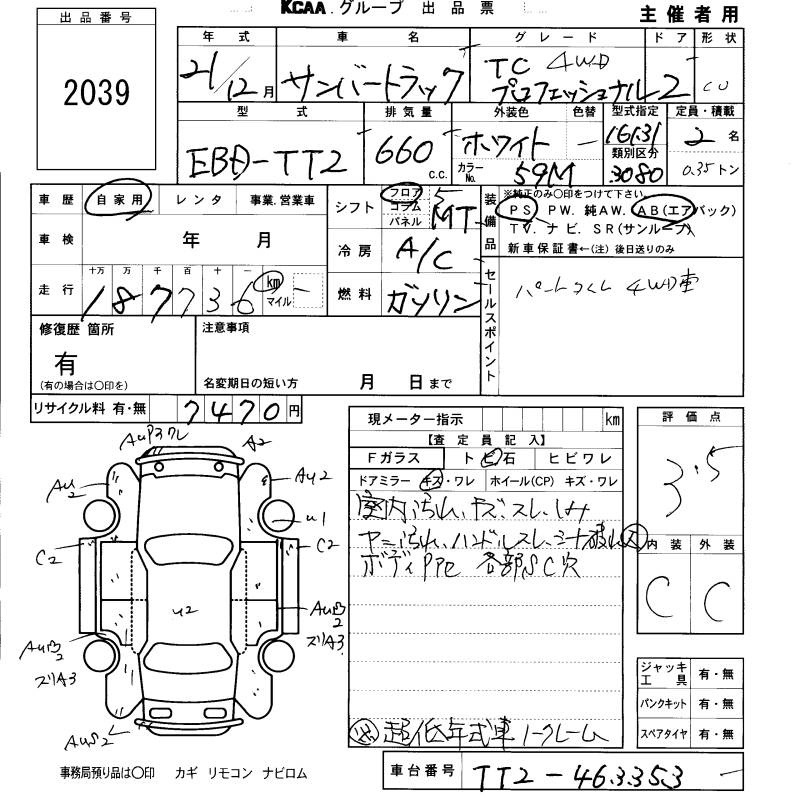 KCAA.グループ 出品票 主催者用
出品番号
2039
年式 車名 グレード ドア 形状
21/12月 サンバートラック TC 4WD プロフェッショナル 2 CU
型式 排気量 外装色 色替 型式指定 定員・積載
EBD-TT2 660 C.C. ホワイト - 16131 2名
カラーNo. 59M 類別区分 3080 0.35トン
車歴 自家用 レンタ 事業.営業車
シフト フロア コラム パネル 5 MT
装備品 ※純正のみ〇印をつけて下さい。
PS PW. 純AW. AB(エアバック)
TV. ナビ. SR(サンルーフ)
新車保証書←(注)後日送りのみ
車検 年 月
冷房 A/C
走行 十万 万 千 百 十 一 km マイル -
187736
燃料 ガソリン
セールスポイント
パートタイム 4WD車
修復歴 箇所
有
(有の場合は〇印を)
注意事項
名変期日の短い方 月 日まで
リサイクル料 有・無 7470円
現メーター指示 km
【査定員記入】
Fガラス トビ石 ヒビワレ
ドアミラー キズ・ワレ ホイール(CP) キズ・ワレ
室内汚れ、キズ、スレ、しみ
ヤニ汚れ、ハンドルスレ、シート破れ大
ボディPPe 各部SC穴
超低年式車ノークレーム
評価点
3.5
内装 外装
C C
ジャッキ工具 有・無
パンクキット 有・無
スペアタイヤ 有・無
車台番号 TT2-463353 -
A2
AU2
AU2
U1
C2
C2
U2
ズリA3
ズリA3
事務局預り品は〇印 カギ リモコン ナビロム